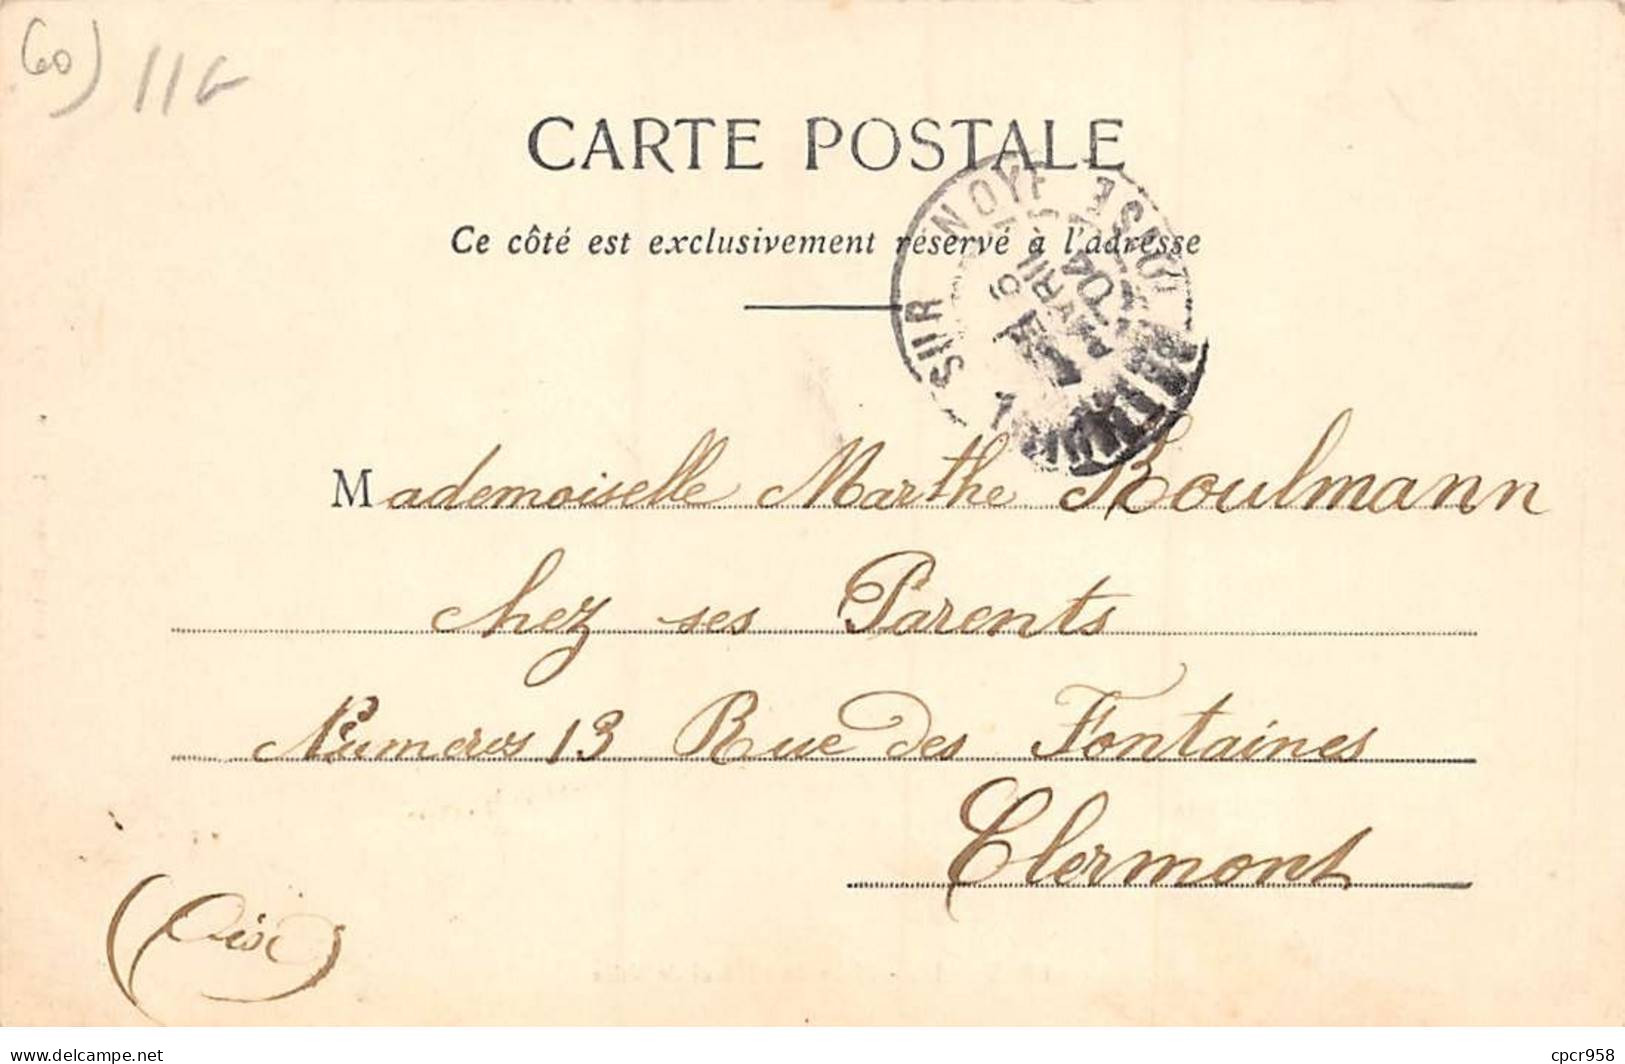 60) 11G
CARTE POSTALE
Ce côté est exclusivement réservé à l'adresse
SUR NOYE OISE
6
AVRIL
04
Mademoiselle Marthe Koulmann
chez ses Parents
Numeros 13 Rue des Fontaines
Clermont
(Oise)
delcampe.net
cpcr958